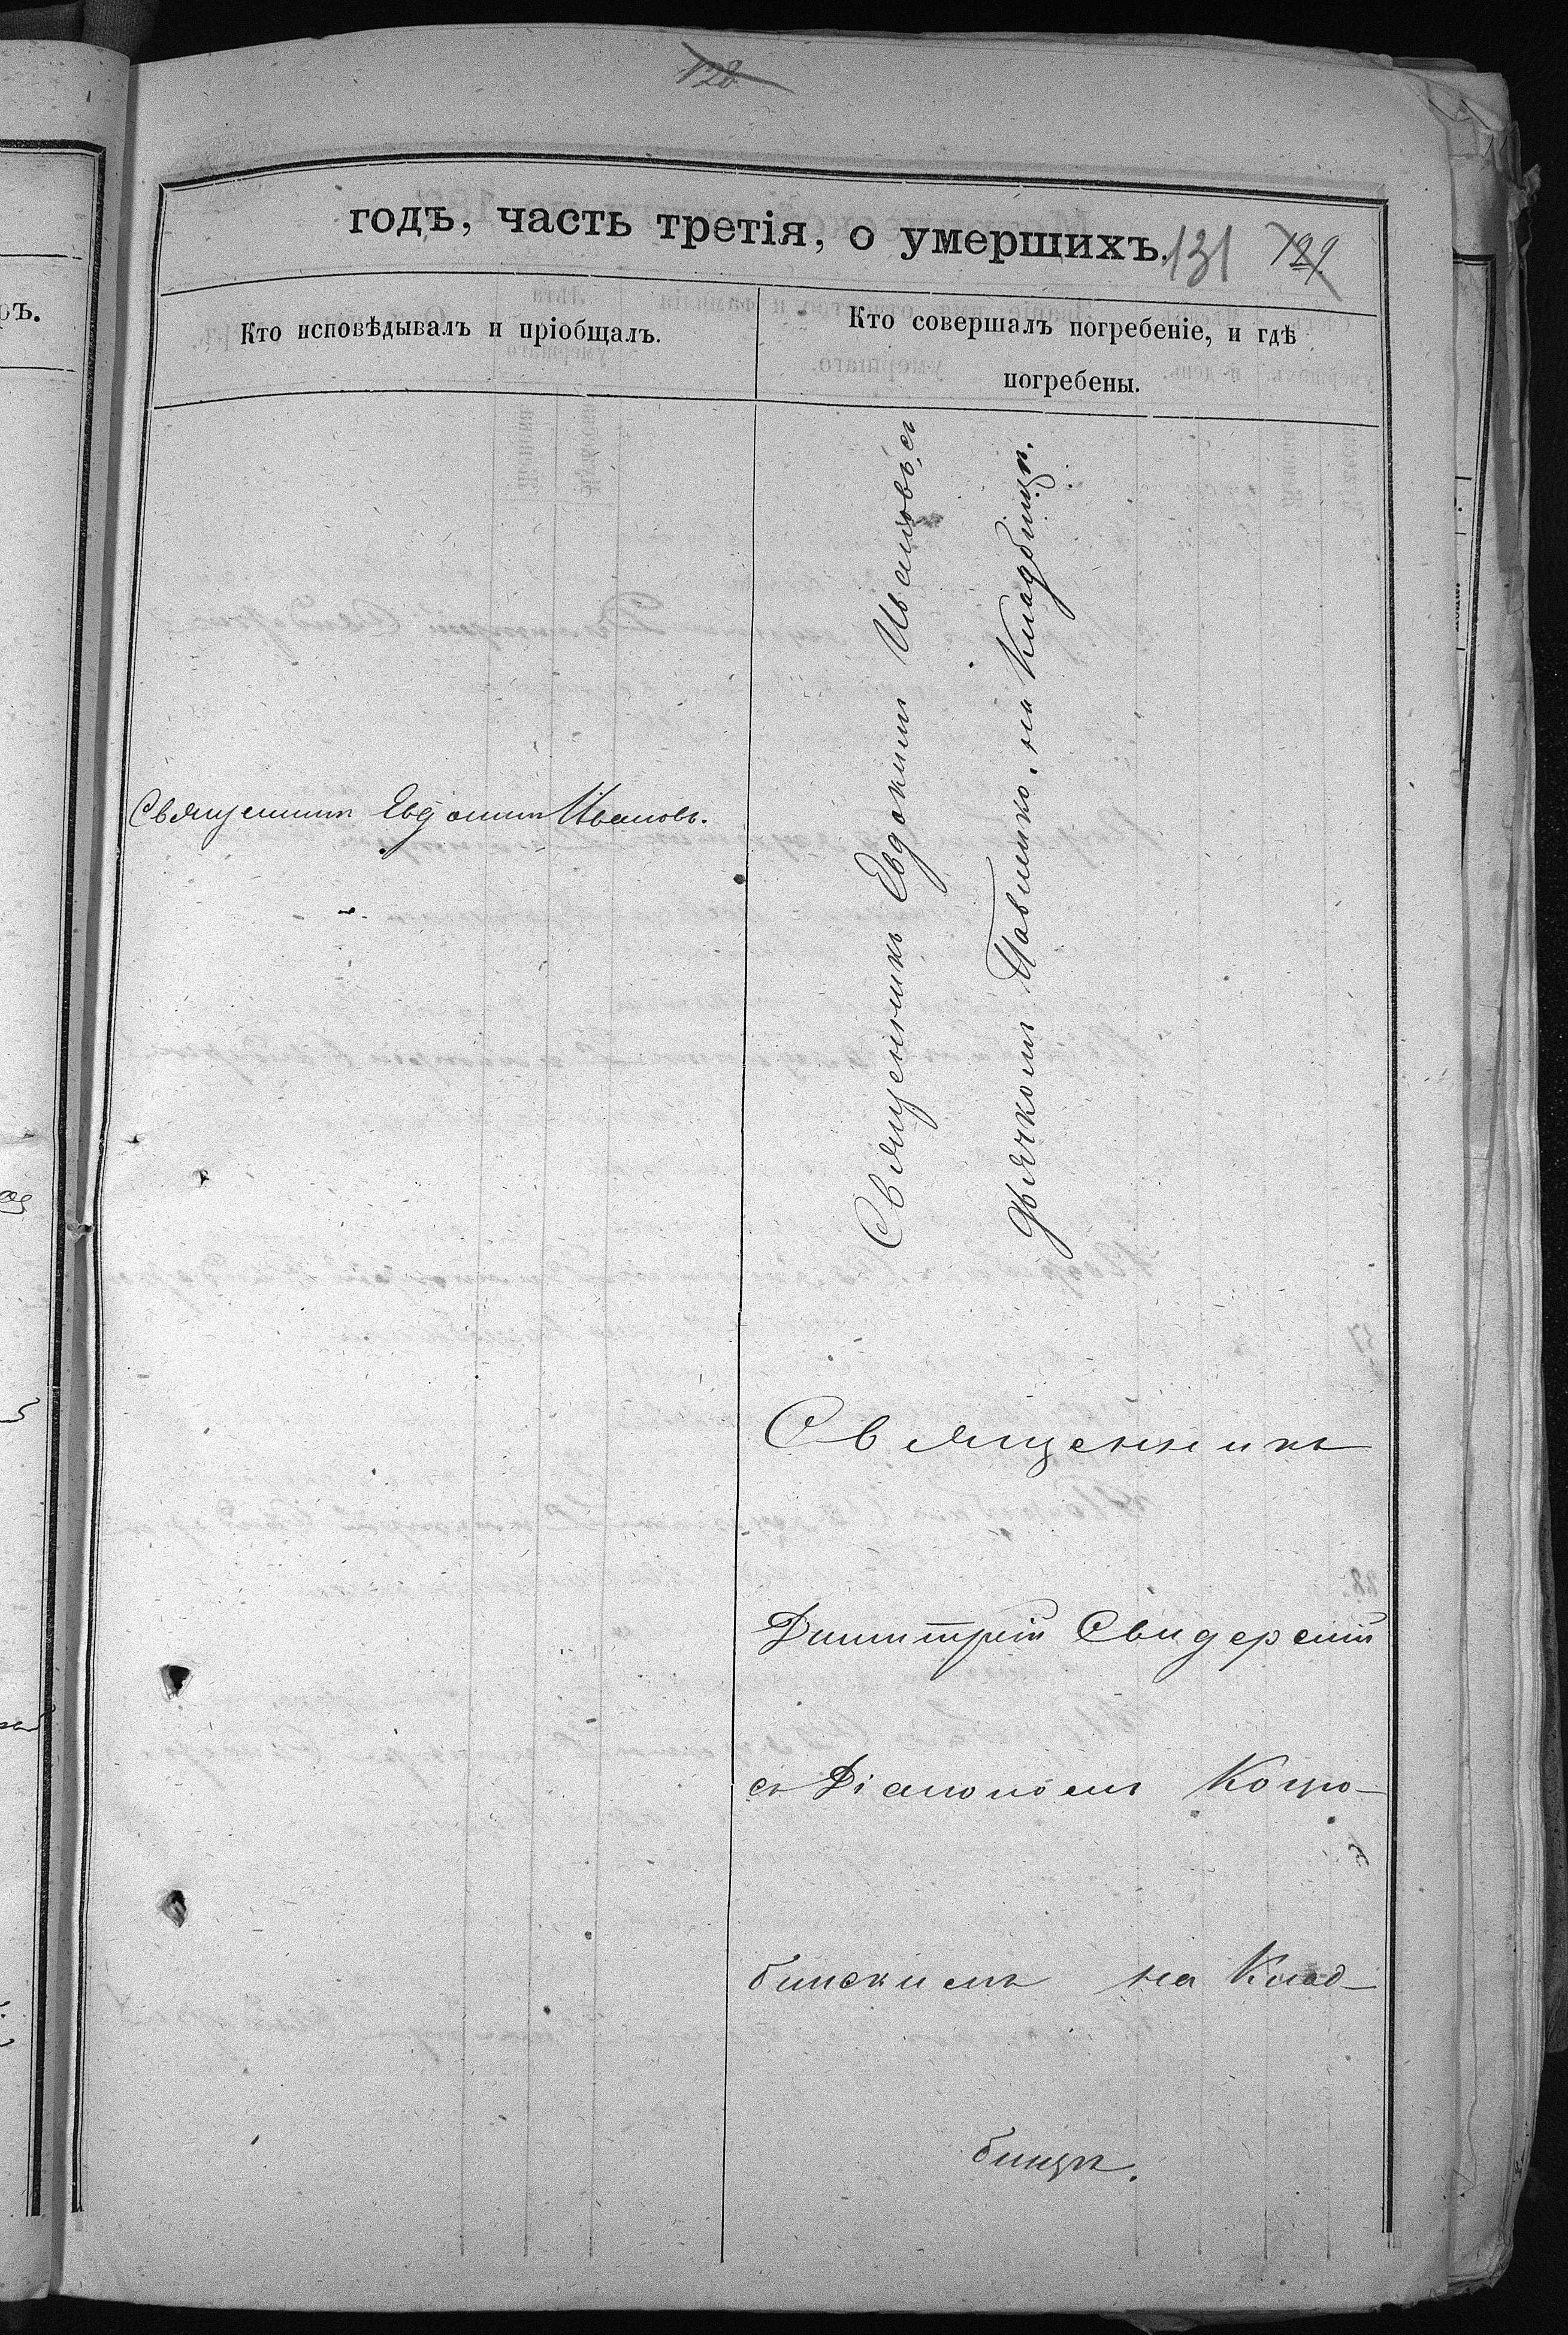 128
годъ, часть третія, о умершихъ.
131 129
Кто исповѣдывалъ и пріобщалъ.
Кто совершалъ погребеніе, и гдѣ
погребены.
Священникъ Евдокимъ Ивановъ.
Священникъ Евдокимъ Ивановъ, съ
дьячкомъ Павленко, на Кладбищѣ.
Священникъ
Димитрій Свидерскій
съ Діакономъ Коцю-
бинскимъ на Клад-
бищѣ.